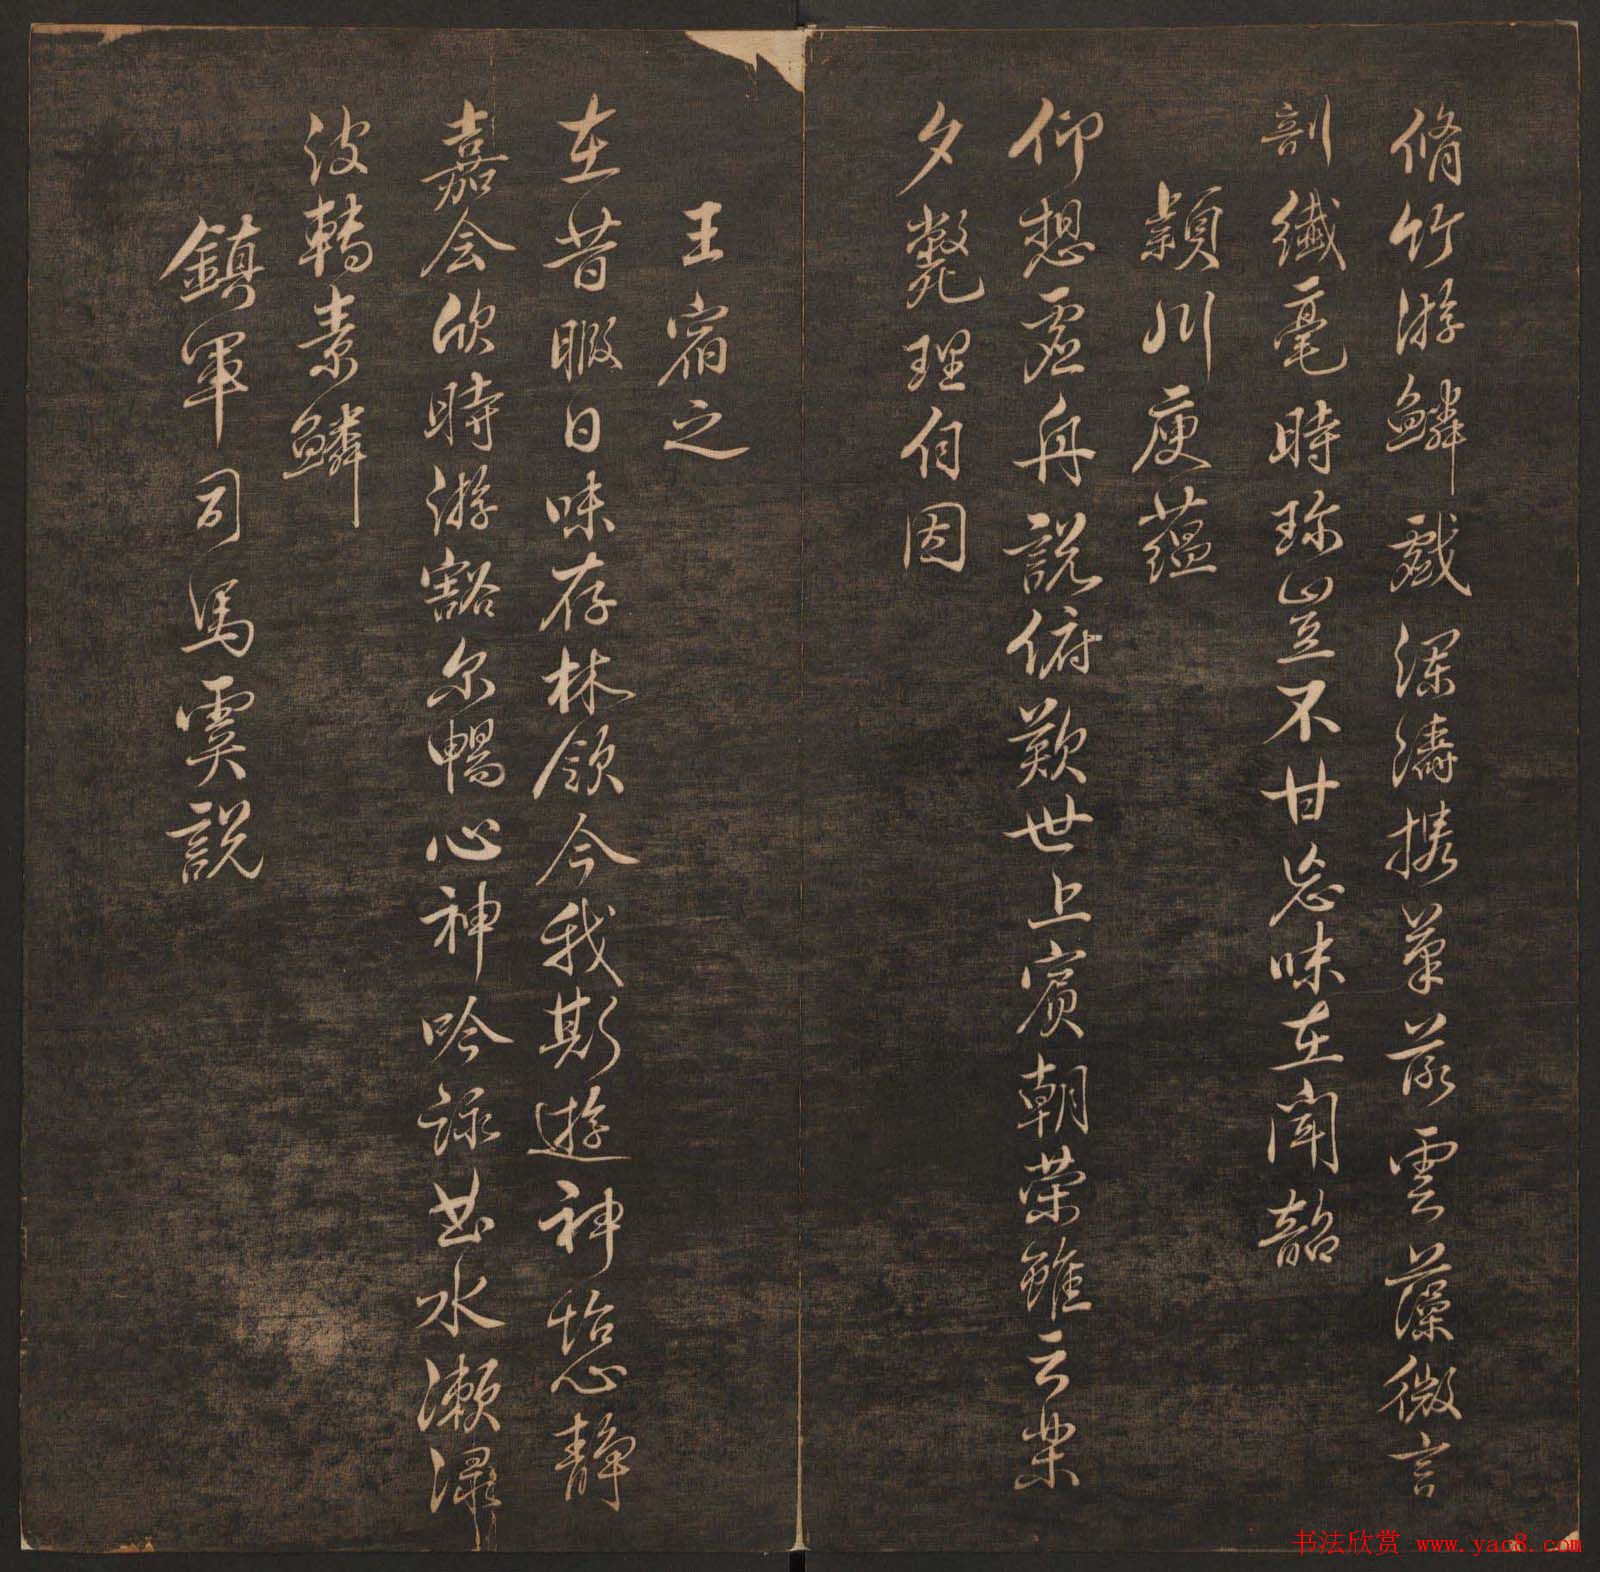 脩竹游鱗戲瀾濤攜筆落雲藻微言
剖纖毫時珎豈不甘忘味在聞韶
潁川庾蘊
仰想虛舟說俯歎世上賓朝榮雖云樂
夕斃理自因
王宿之
在昔暇日味存林領今我斯遊神怡心靜
嘉会欣時游豁尔暢心神吟詠曲水瀨淥
波轉素鱗
鎮軍司馬虞說
书法欣赏 www.yac8.com